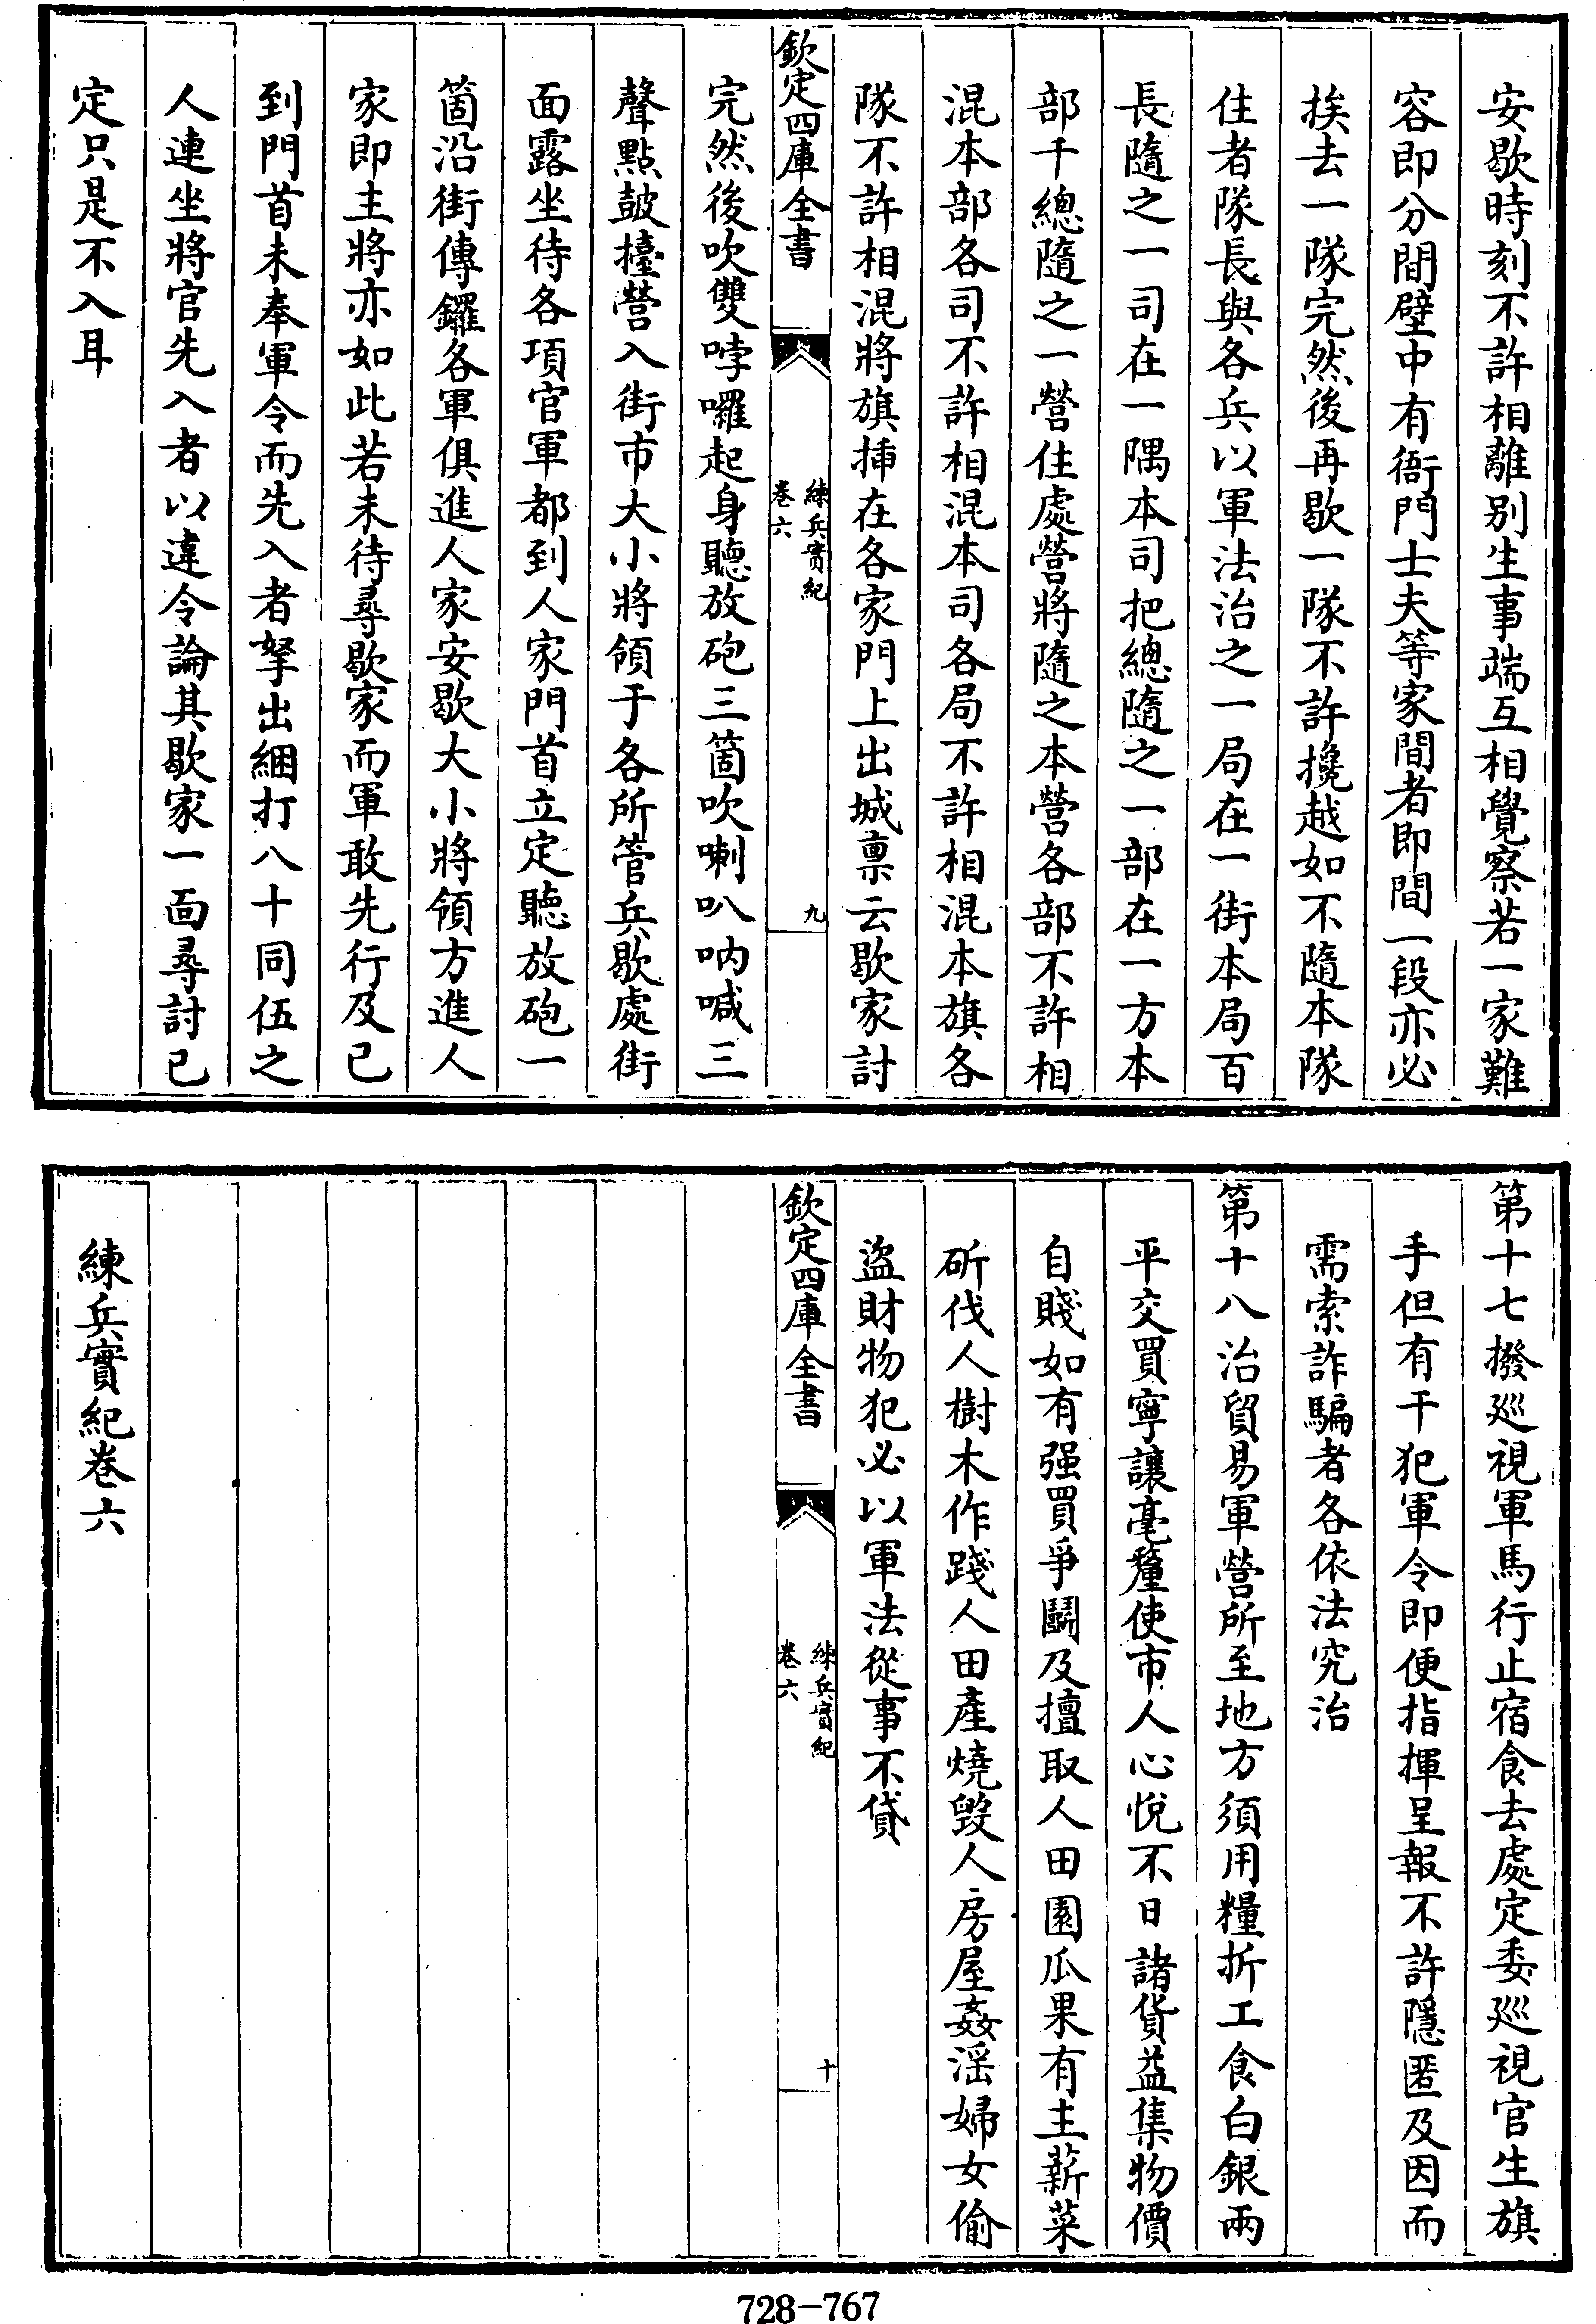 安歇時刻不許相離别生事端互相覺察若一家難
容即分間壁中有衙門士夫等家間者即間一段亦必
挨去一隊完然後再歇一隊不許攙越如不隨本隊
住者隊長與各兵以軍法治之一局在一街本局百
長隨之一司在一隅本司把總隨之一部在一方本
部千總隨之一營住處營將隨之本營各部不許相
混本部各司不許相混本司各局不許相混本旗各
隊不許相混將旗挿在各家門上出城禀云歇家討
欽定四庫全書
練兵實紀
卷六
九
完然後吹雙哱囉起身聽放砲三箇吹喇叭吶喊三
聲點皷擡營入街市大小將領于各所管兵歇處街
面露坐待各項官軍都到人家門首立定聽放砲一
箇沿街傳鑼各軍俱進人家安歇大小將領方進人
家即主將亦如此若未待尋歇家而軍敢先行及已
到門首未奉軍令而先入者拏出綑打八十同伍之
人連坐將官先入者以違令論其歇家一面尋討已
定只是不入耳
第十七撥廵視軍馬行止宿食去處定委廵視官生旗
手但有干犯軍令即便指揮呈報不許隱匿及因而
需索詐騙者各依法究治
第十八治貿易軍營所至地方須用糧折工食白銀兩
平交買寧讓毫釐使市人心悅不日諸貨益集物價
自賤如有强買爭鬭及擅取人田園瓜果有主薪菜
斫伐人樹木作踐人田產燒毁人房屋姦滛婦女偷
盜財物犯必以軍法從事不貸
欽定四庫全書
練兵實紀
卷六
十
練兵實紀卷六
728-767